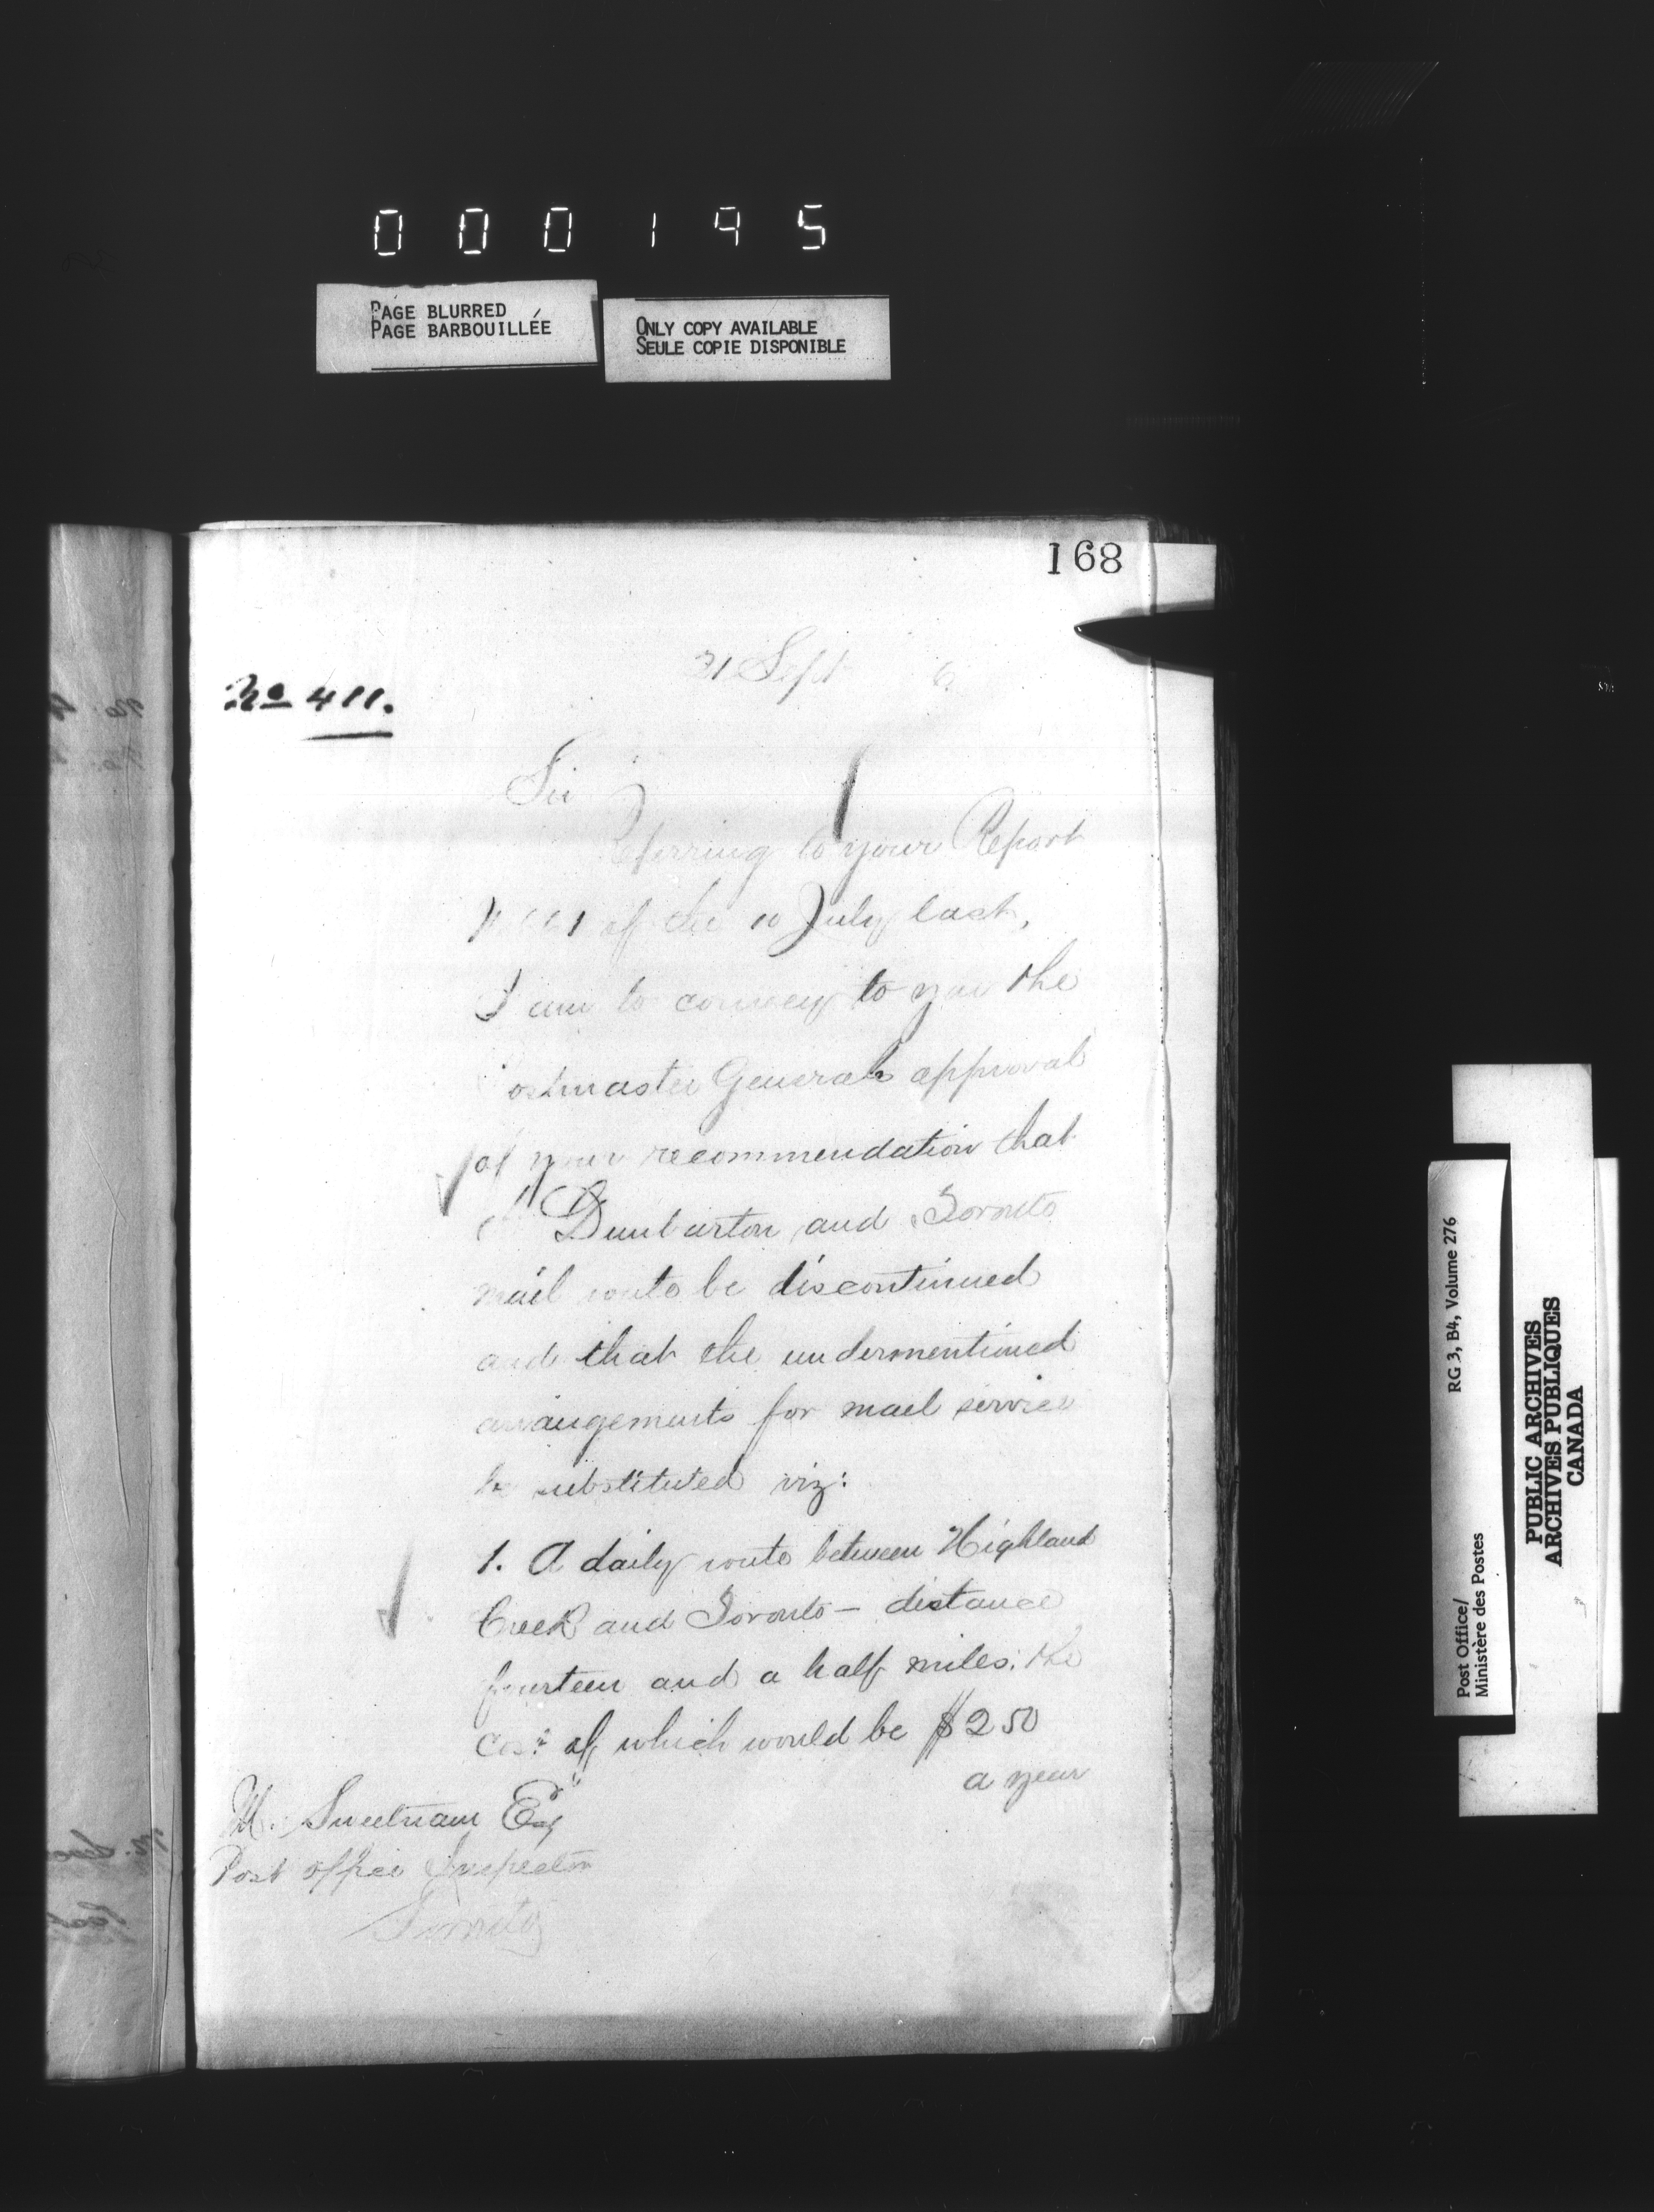 000195
PAGE BLURRED
PAGE BARBOUILLÉE
ONLY COPY AVAILABLE
SEULE COPIE DISPONIBLE
168
21 Sept 6
No 411.
Sir
Referring to your Report
of the 10 July last,
I am to convey to you the
Postmaster Generals approval
of your recommendation that
Dunbarton and Toronto
mail route be discontinued
and that the undermentioned
arrangements for mail service
be substituted viz:
1. A daily route between Highland
Creek and Toronto — distance
fourteen and a half miles: the
cost of which would be $250
a year
M. Sweetnam Esqr
Post office Inspector
Toronto
Post Office/
Ministère des Postes
RG 3, B4, Volume 276
PUBLIC ARCHIVES
ARCHIVES PUBLIQUES
CANADA